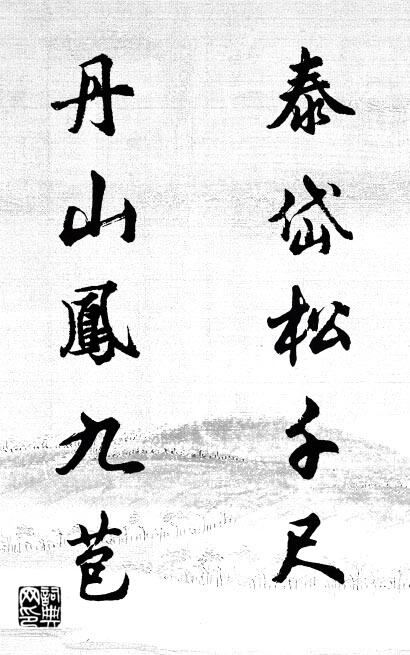 泰岱松千尺
丹山鳳九苞
詞典网印